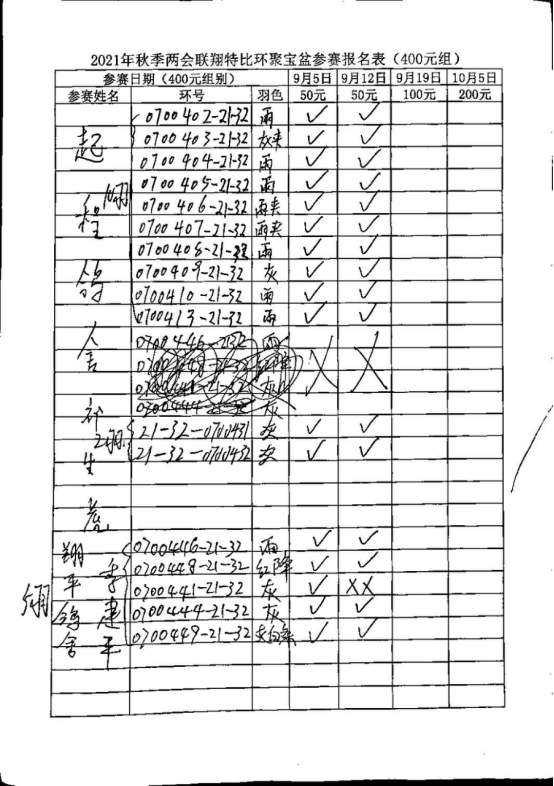 2021年秋季两会联翔特比环聚宝盆参赛报名表（400元组）
参赛日期（400元组别） 9月5日 9月12日 9月19日 10月5日
参赛姓名 环号 羽色 50元 50元 100元 200元
0700402-21-32 雨 ✓ ✓
起 0700403-21-32 灰夹 ✓ ✓
0700404-21-32 雨 ✓ ✓
0700405-21-32 雨 ✓ ✓
程 10羽 0700406-21-32 雨夹 ✓ ✓
0700407-21-32 雨夹 ✓ ✓
0700408-21-32 雨 ✓ ✓
鸽 0700409-21-32 灰 ✓ ✓
0700410-21-32 雨 ✓ ✓
0700413-21-32 雨 ✓ ✓
舍 0700446-2132 雨
X X
灰
0700444 灰
2羽 21-32-0700431 灰 ✓ ✓
生 21-32-0700432 灰 ✓ ✓
翔 0700446-21-32 雨 ✓ ✓
平 李 0700448-21-32 红降 ✓ ✓
5羽 0700441-21-32 灰 ✓ XX
鸽 建 0700444-21-32 灰 ✓ ✓
舍 平 0700449-21-32 灰白条 ✓ ✓